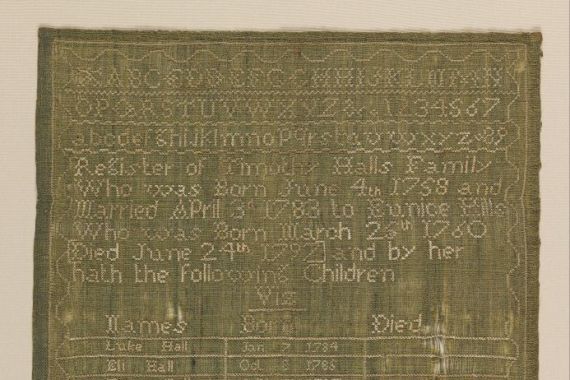 ABCDEFGHIJKLMN
OPQRSTUVWXYZ &. 1234567
abcdefghijklmnopqrstuvwxyz 89
Register of Timothy Halls Family
Who was Born June 4th 1758 and
Married April 3d 1783 to Eunice Hills
Who was Born March 1760
Died June 24th 1792 and by her
hath the following Children
Viz
Names Born Died
Luke Hall Jan 7 1784
Eli Hall Oct 1785